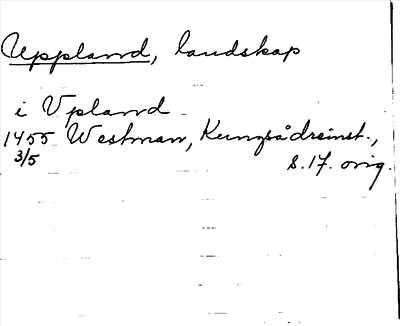 Uppland, landskap
i Vpland
1455 Westman, Kungsådreinst.,
3/5 s. 17. orig.